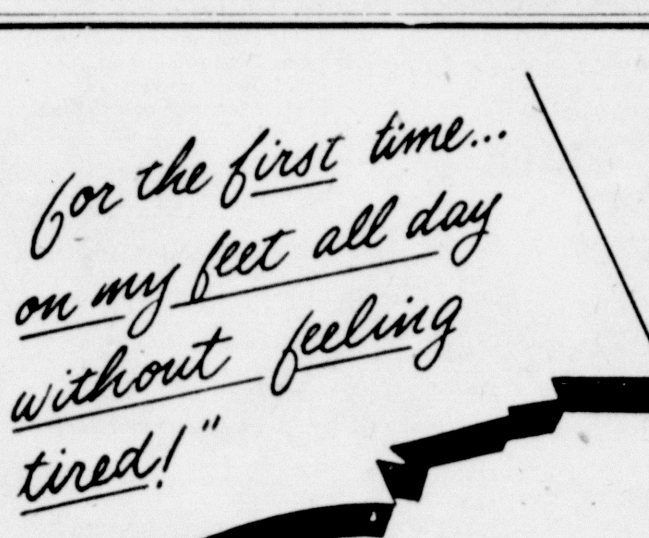 for the first time...
on my feet all day
without feeling
tired!"